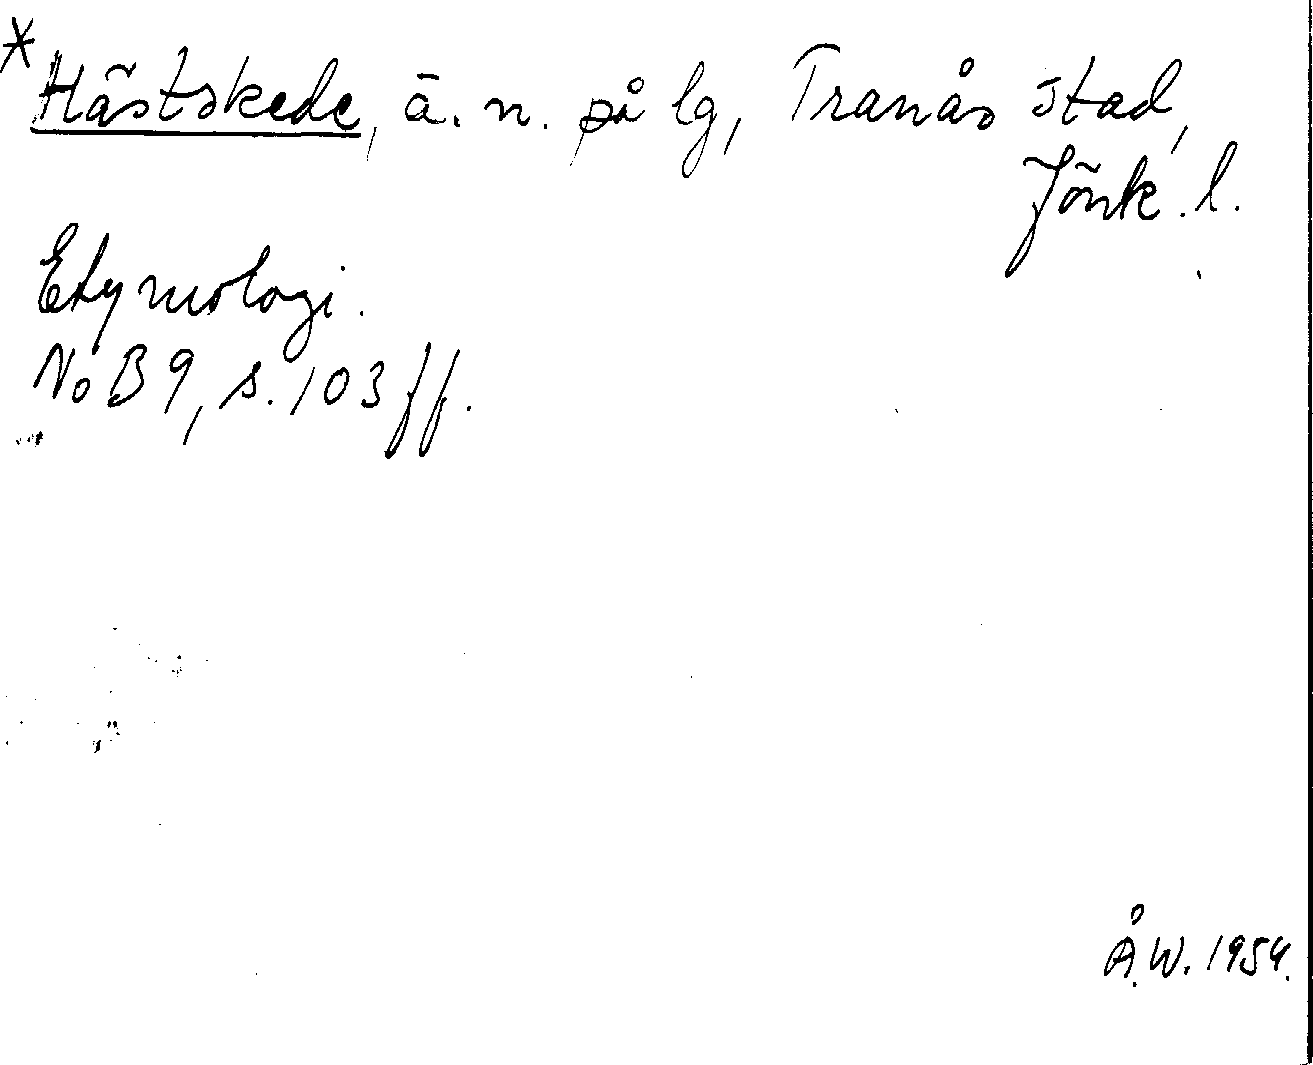 *Hästskede, ä. n. på lg, Tranås stad,
Jönk. l.
Etymologi.
NoB 9, s. 103 ff.
Å.W. 1954.